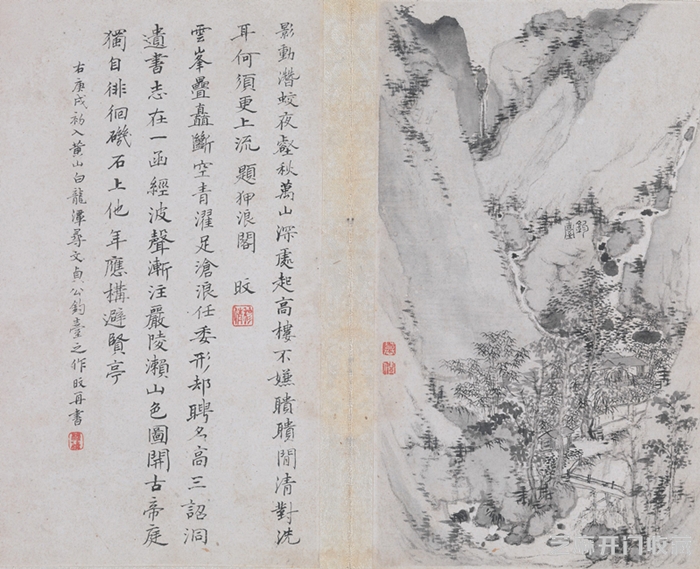 影動潛蛟夜壑秋萬山深處起高樓不嫌聵聵閒清對洗
耳何須更上流 題狎浪閣 旼
雲峯疊矗斷空青濯足滄浪任委形却聘名高三詔洞
遺書志在一函經波聲漸注嚴陵瀨山色圖開古帝庭
獨自徘徊磯石上他年應構避賢亭
右庚戌初入黃山白龍潭尋文貞公釣臺之作旼再書
釣臺
开门收